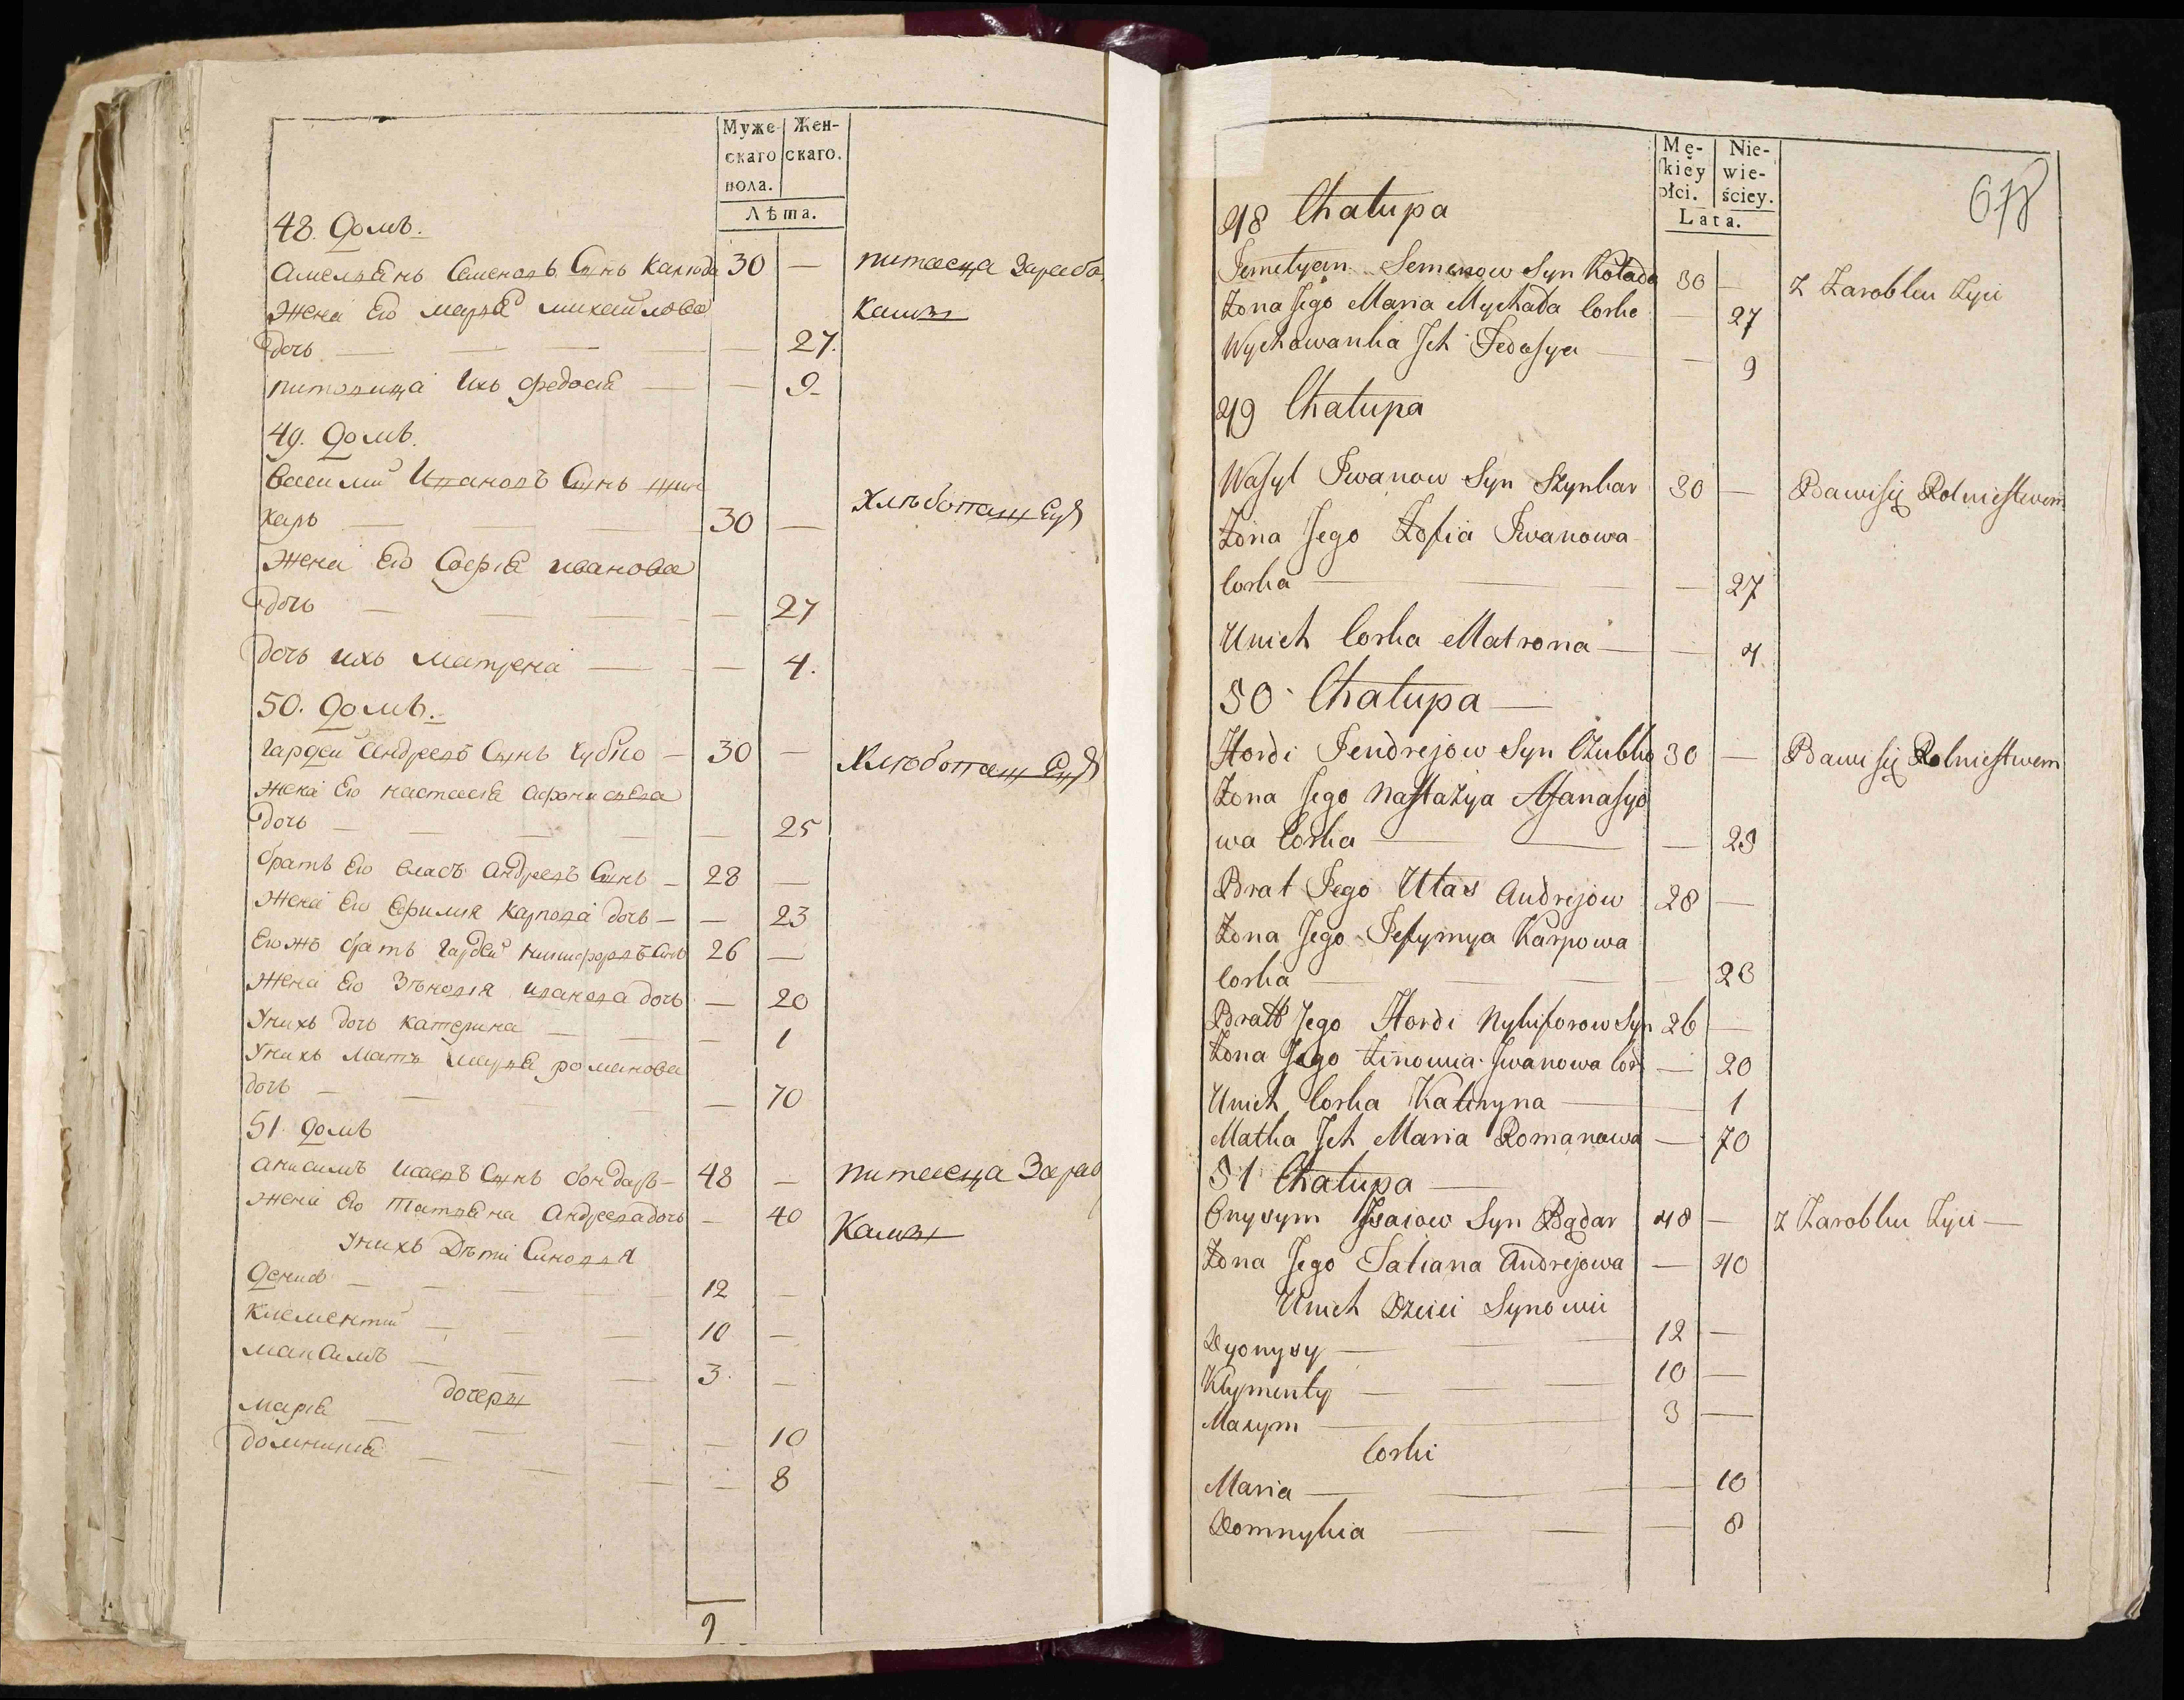 Муже- Жен-
скаго скаго.
пола.
Лѣта.
48. Домъ.
Амельянъ Семеновъ Сынъ Калюда 30 — питаеца Зарабо
Жена Его Марья Михайлова Камы
дочь — — — — 27.
питовица Ихъ Федосія — — 9.
49. Домъ.
Василий Ивановъ Сынъ Шин
карь — — 30 — Хлебопашец
Жена Его Софія Иванова
дочь — — — — 27
дочь ихъ Матрена — — 4.
50. Домъ.
Гардей Андреевъ Сынъ Чубко — 30 — Хлебопашец
Жена Его Настасія Афонасьева
дочь — — — — — 25
братъ Его Власъ Андреевъ Сынъ — 28 —
Жена Его Ефимія Карпова дочь — — 23
Егожъ братъ Гардей Никифоровъ Сынъ 26 —
Жена Его Зѣновія Иванова дочь — 20
Унихъ дочь Катерина — — 1
Унихъ Мать Марья Романова
дочь — — — 70
51. Домъ
Анисимъ Исаевъ Сынъ Бондарь — 48 — питаеца Зараб
Жена Его Татьяна Андреева дочь — 40 Камы
Унихъ Дѣти Сыновья
Денис — — — 12 —
Клементий — — 10 —
Максимъ — — — 3. —
дочеры
Марія — — — — 10
Домникія — — — — 8
9
Mę- Nie-
skiey wie-
płci. ściey.
Lata.
678
48 Chałupa
Jemelyan Semenow Syn Kolada 30 — Z Zarobku Żyii
Żona Jego Maria Mychała Corka — 27
Wychowanka Jch Fedosya — — 9
49 Chałupa
Wasyl Jwanow Syn Szynkar 30 — Bawi się Rolnictwem
Żona Jego Zofia Jwanowa
Corka — — — 27
Unich Corka Matrona — — 4
50 Chałupa —
Hordi Jendrejow Syn Czubko 30 — Bawi się Rolnictwem
Żona Jego Nastazya Afanasyo
wa Corka — — — 25
Brat Jego Ułas Andrejow 28 —
Żona Jego Jefymya Karpowa
Corka — — — 23
Bratt Jego Hordi Nykiforow Syn 26 —
Żona Jego Zinowia Jwanowa Cor — 20
Unich Corka Kateryna — — 1
Matka Jch Maria Romanowa — 70
51 Chałupa —
Onysym Jsaiow Syn Bądar 48 — Z Zarobku Żyii —
Żona Jego Tatiana Andrejowa — 40
Unich Dzieci Synowii
Dyonysy — — — 12 —
Klymenty — — — 10 —
Maxym — — 3 —
Corki
Maria — — — — 10
Domnykia — — — 8